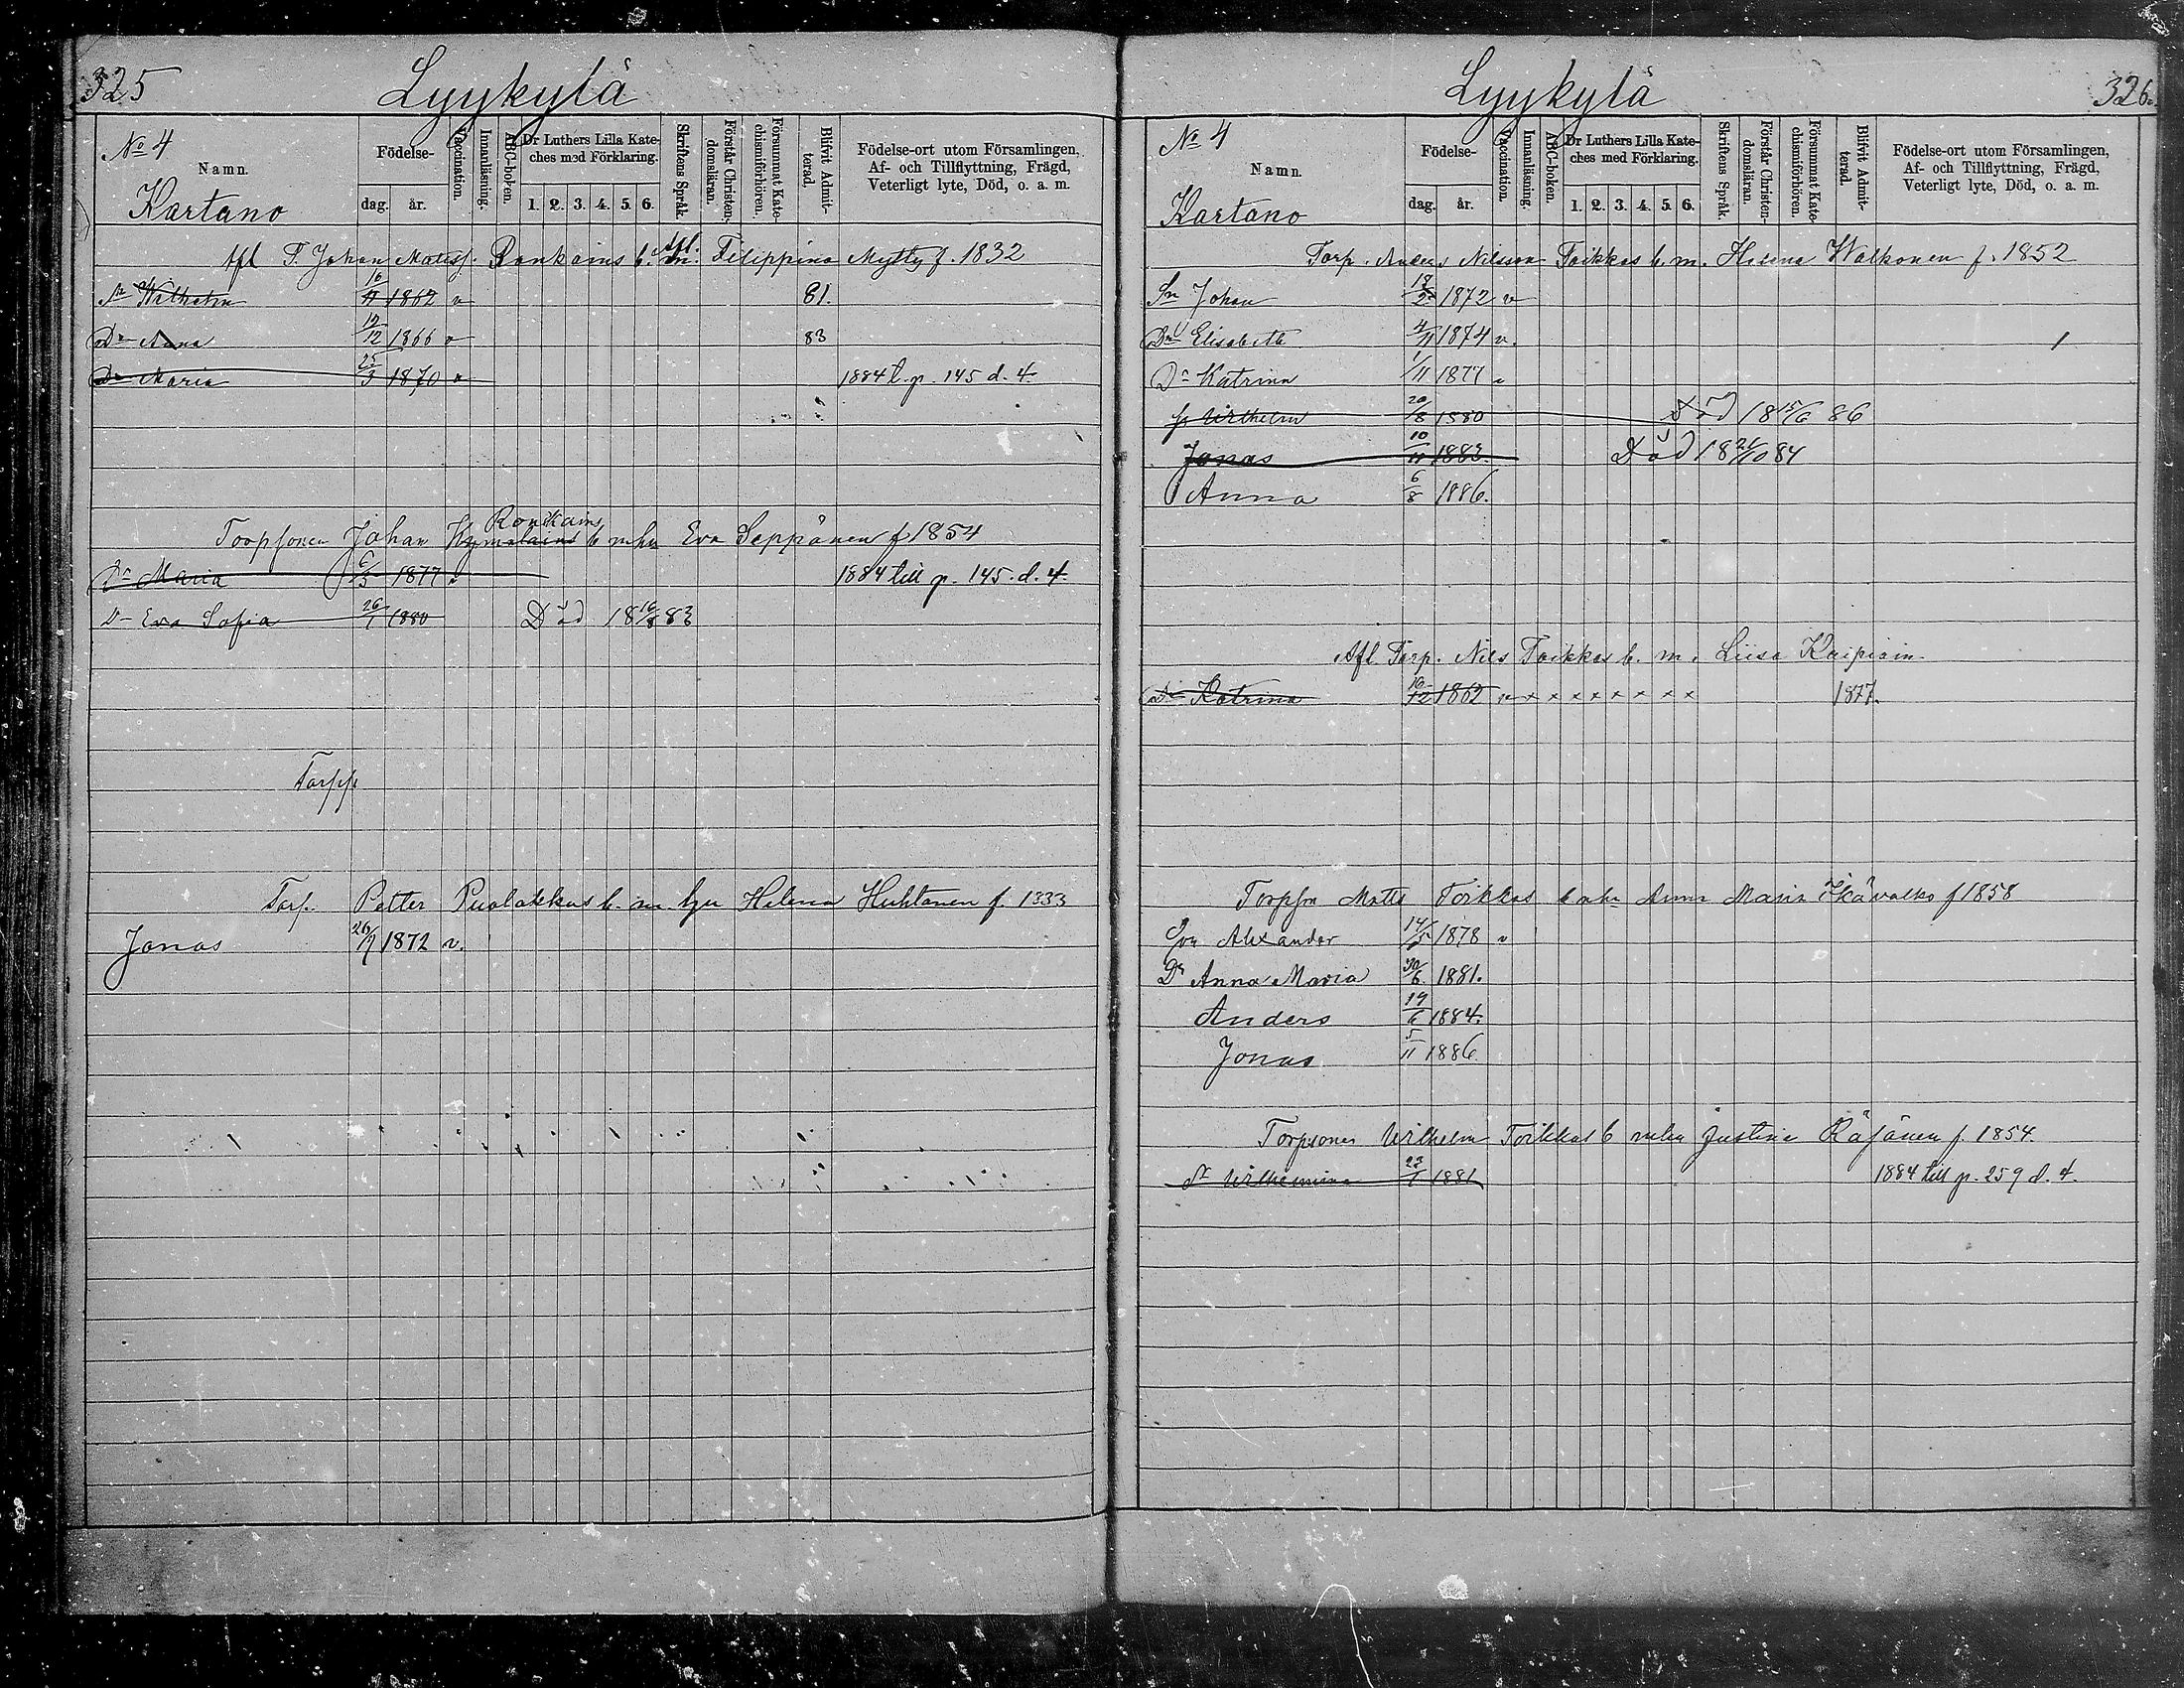 325
Lyykylä
No 4
Namn.
Kartano
Födelse-
dag. år.
Vaccination.
Innanläsning.
ABC-boken.
Dr Luthers Lilla Kate-
ches med Förklaring.
1. 2. 3. 4. 5. 6.
Skriftens Språk.
Förstår Christen-
domsläran.
Försummat Kate-
chismiförhören.
Blifvit Admit-
terad.
Födelse-ort utom Församlingen,
Af- och Tillflyttning, Frägd,
Veterligt lyte, Död, o. a. m.
Afl T. Johan Matss. Ronkains b. m. Afl. Filippina Mytty f. 1832
Sn Wilhelm 1862 v 81.
Dr Anna 19/12 1866 v 83
Dr Maria 25/3 1870 v 1884 t. p. 145 d. 4.
Torpsonen Johan Ronkains b mhu Eva Seppänen f 1854
Dr Maria 6/3 1877 v 1884 till p. 145. d. 4.
Dr Eva Sofia 26/1 1880 Död 18 16/8 83
Torpp
Torp. Petter Puolakkas b. m hu Helena Huhtanen f. 1833
Jonas 1872 v.
326.
Lyykylä
No 4
Namn.
Kartano
Födelse-
dag. år.
Vaccination.
Innanläsning.
ABC-boken.
Dr Luthers Lilla Kate-
ches med Förklaring.
1. 2. 3. 4. 5. 6.
Skriftens Språk.
Förstår Christen-
domsläran.
Försummat Kate-
chismiförhören.
Blifvit Admit-
terad.
Födelse-ort utom Församlingen,
Af- och Tillflyttning, Frägd,
Veterligt lyte, Död, o. a. m.
Torp. Anders Nilsson Toikkas b. m. Helena Walkonen f. 1852
Sn Johan 1872 v
Dr Elisabeth 4/11 1874 v.
Dr Katrina 1/11 1877 v
Wilhelm 20/8 1880 Död 18 15/6 86
Jonas 10/11 1883. Död 18 21/10 84
Anna 6/8 1886.
Afl. Torp. Nils Toikkas b. m. Liisa Kaipiain
Dr Katrina 16/12 1862 v x x x x x x x x 1877.
Torpson Matts Toikkas b mhu Anna Maria Ikävalko f 1858
Son Alexander 14/5 1878 v
Dr Anna Maria 30/6. 1881.
Anders 19/6 1884.
Jonas 5/11 1886
Torpsonen Wilhelm Toikkas b mhu Justina Räsänen f. 1854.
Dr Wilhelmina 23/1 1881 1884 till p. 259 d. 4.